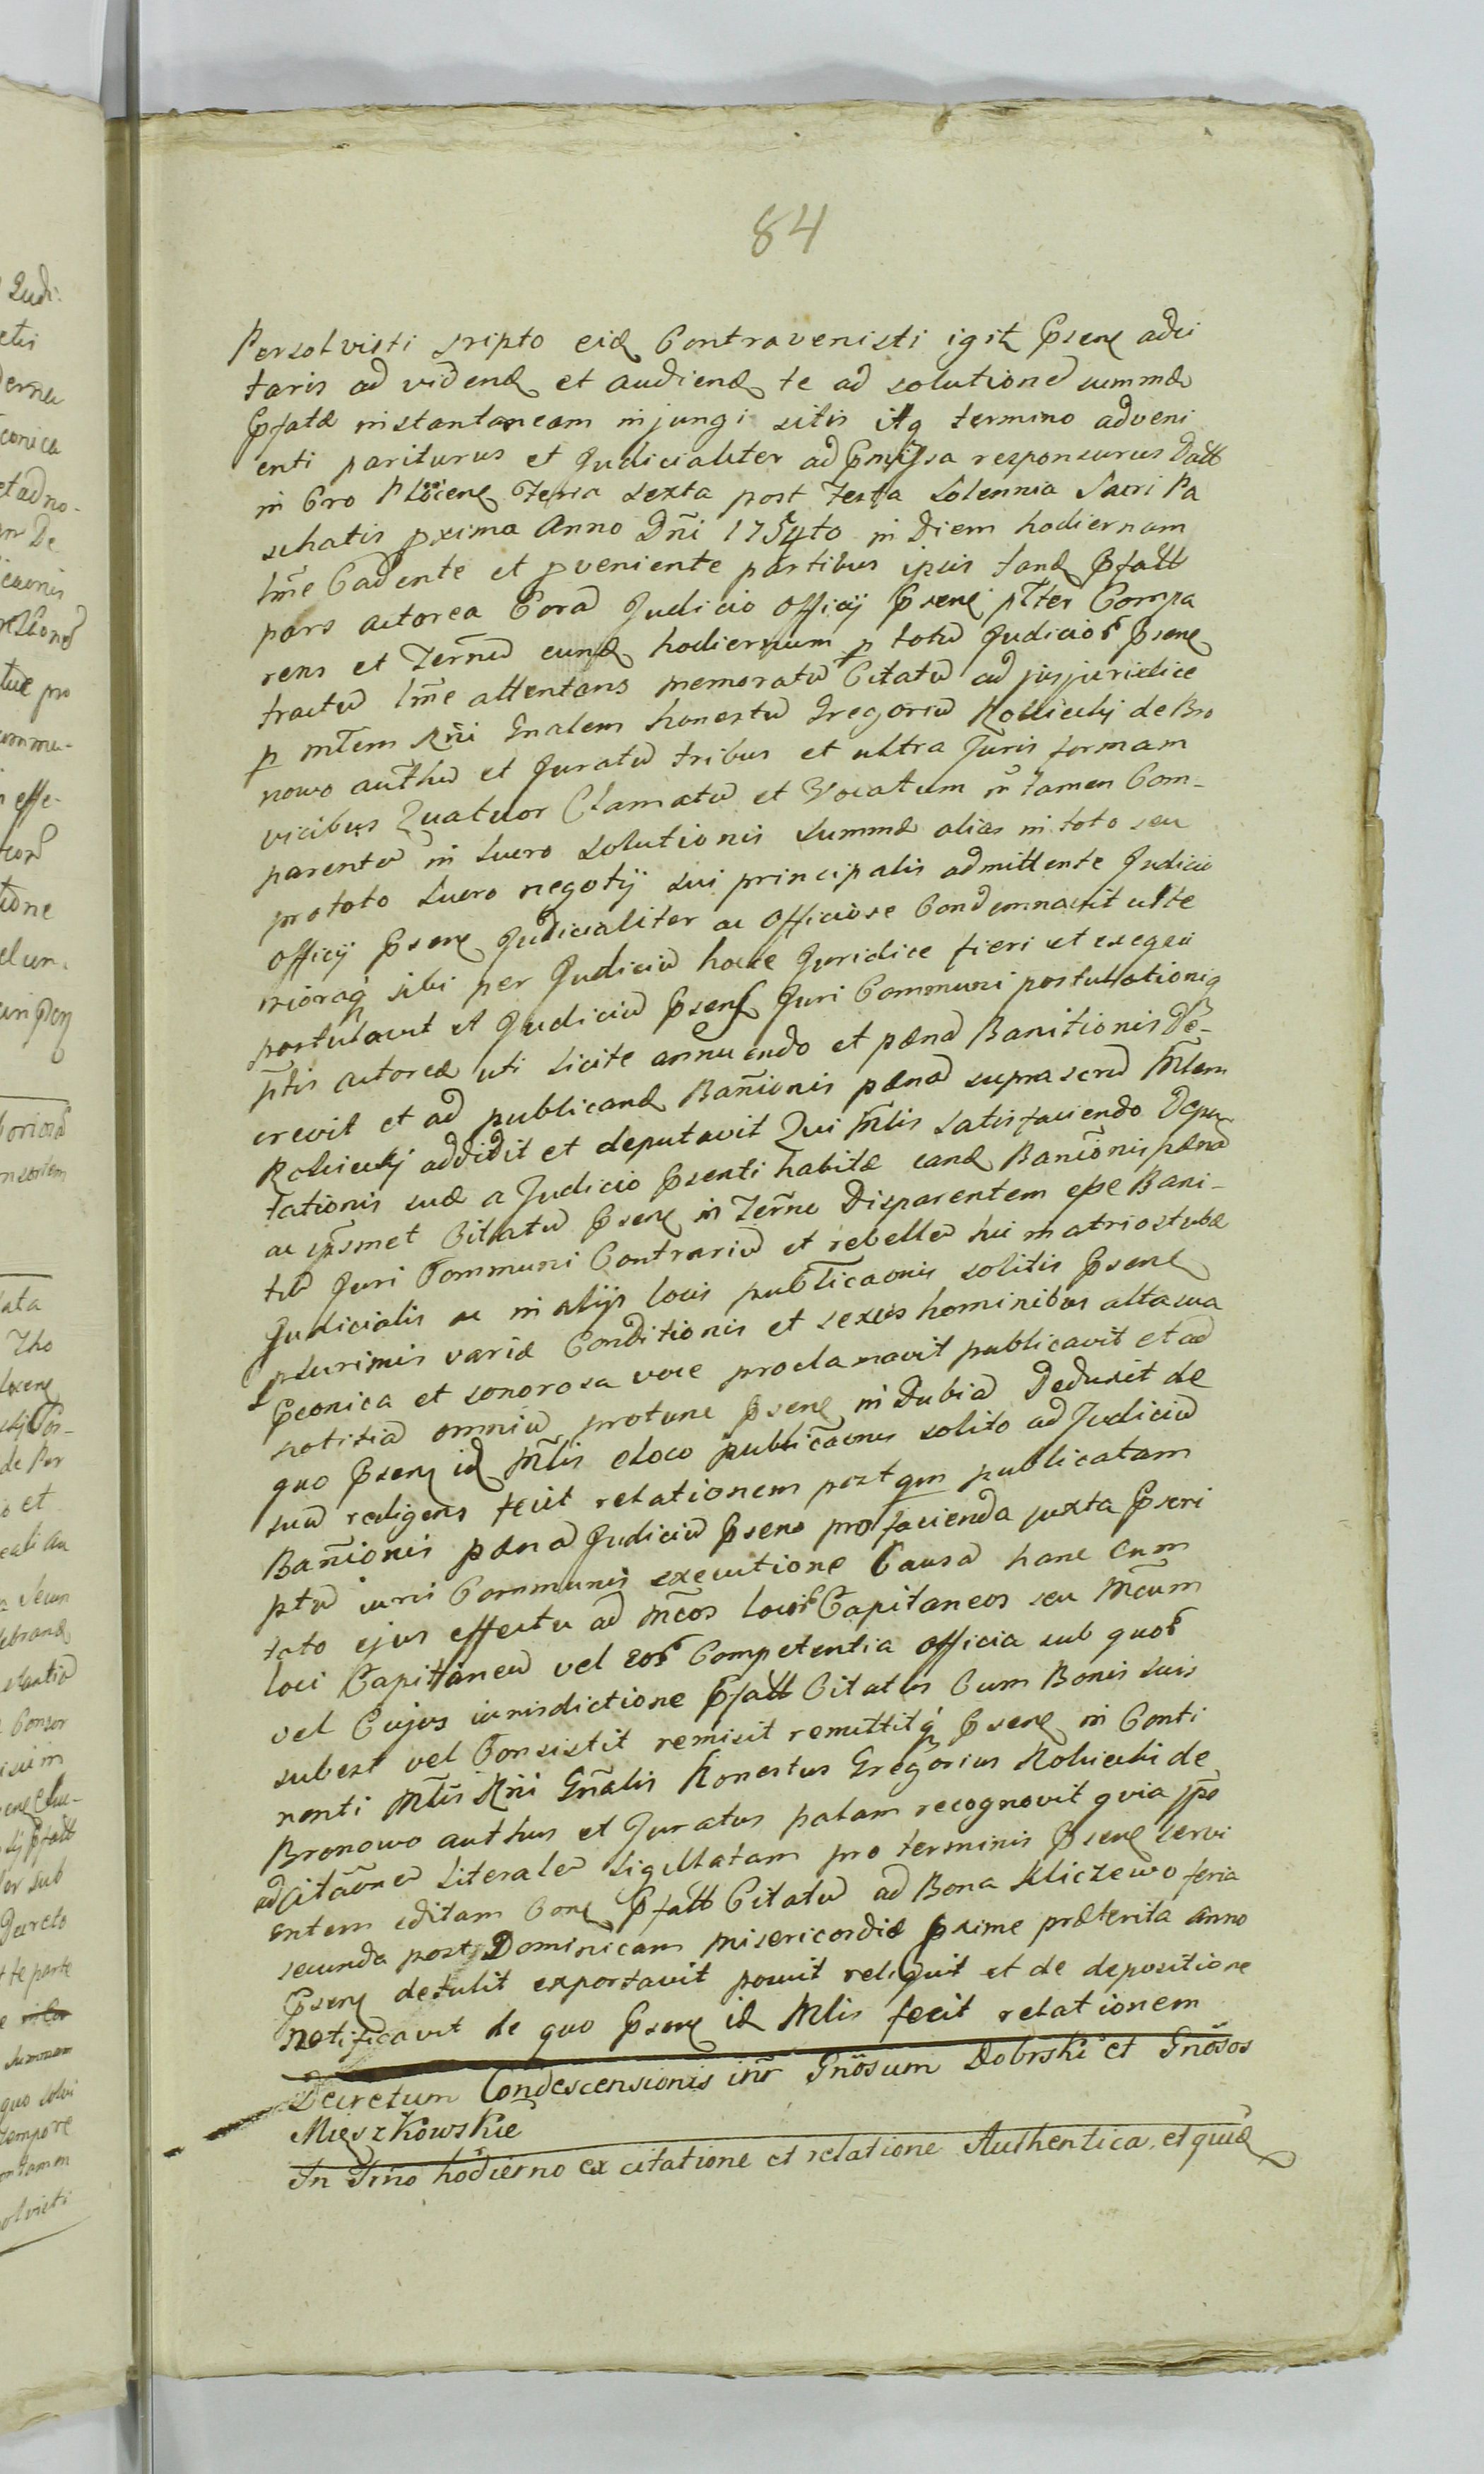 84
Persolvisti scripto eid Contravenisti igit psens adci
taris ad vidend et audiend te ad solutionē summæ
pfatæ instantaneam injungi sitis itq termino adveni
enti pariturus et Judicialiter ad pmissa responsurus Datt
in Cro Plocens Feria sexta post Festa Solennia Sacri Pa
schatis pxima Anno Dñi 1754to in Diem hodiernam
lm̃e Cadente et pveniente partibus ipsis tand pfatt
pars actorea Corā Judicio Officij psens pl̃ter Compa
rens et Terñū eund hodiernum p totū Judicior psens
tractū lm̃e attentans memoratū Citatū ad jus juridice
p ml̃em Rñi Gñalem honestū Gregoriū Robiecki de Bro
nowo authū et Juratū tribus et ultra Juris formam
vicibus Quatuor Clamatū et Vocatum ñ tamen Com-
parentē in lucro solutionis summæ alias in toto seu
pro toto lucro negotij sui principalis admittente Judicio
Officij psens Judicialiter ac Officiose Condemnavit ulte
rioraq sibi per Judiciū hocce Juridice fieri et exeqvi
postulavit et Judiciū psens Juri Communi postulationiq
p̃tis actoreæ uti licite annuendo et pænā Banitionis De-
crevit et ad publicand Bañionis pænā suprascrū Ml̃em
Robiecki addidit et deputavit Qui Ml̃is satisfaciendo Depu
tationis suæ a Judicio psenti habitæ eand Bañionis pænā
ac ipsmet Citatū psens in Terñu Disparentem esse Bani-
tū Juri Communi Contrariū et rebellē hic in atrio stubæ
Judicialis ac in alijs locis publicaonis solitis psens
plurimis variæ Conditionis et sexus hominibus alta sua
pconica et sonorosa voce proclamavit publicavit et ad
notitiā omniū protunc psens in dubiā Deduxit de
quo psens id Ml̃is e loco publicãonis solito ad Judiciū
suū redigens fecit relationem post qm publicatam
Bañionis pænā Judiciū psens pro facienda juxta pscri
ptū iuris Communis executione Causā hanc cum
toto ejus effectu ad m̃cos locor Capitaneos seu m̃cum
loci Capitaneū vel eor Competentia Officia sub quor
vel Cujus iurisdictione pfatt Citatus Cum Bonis suis
subest vel Consistit remisit remittitq psens in Conti
nenti Ml̃is Rñi Gñalis honestus Gregorius Robiecki de
Bronowo authus et Juratus palam recognovit qvia ip̃e
ad Citãonē literalē sigillatam pro terminis psens servi
entem editam Cone pfatt Citatū ad Bona Kliczewo feria
secunda post Dominicam Misericordiæ pxime præterita anno
psens detulit exportavit posuit reliquit et de depositione
notificavit de quo psens id Ml̃is fecit relationem
Decretum Condescensionis intr Gñosum Dobrski et Gñosos
Mięszkowskie
In Trño hodierno ex citatione et relatione Authentica, et quid